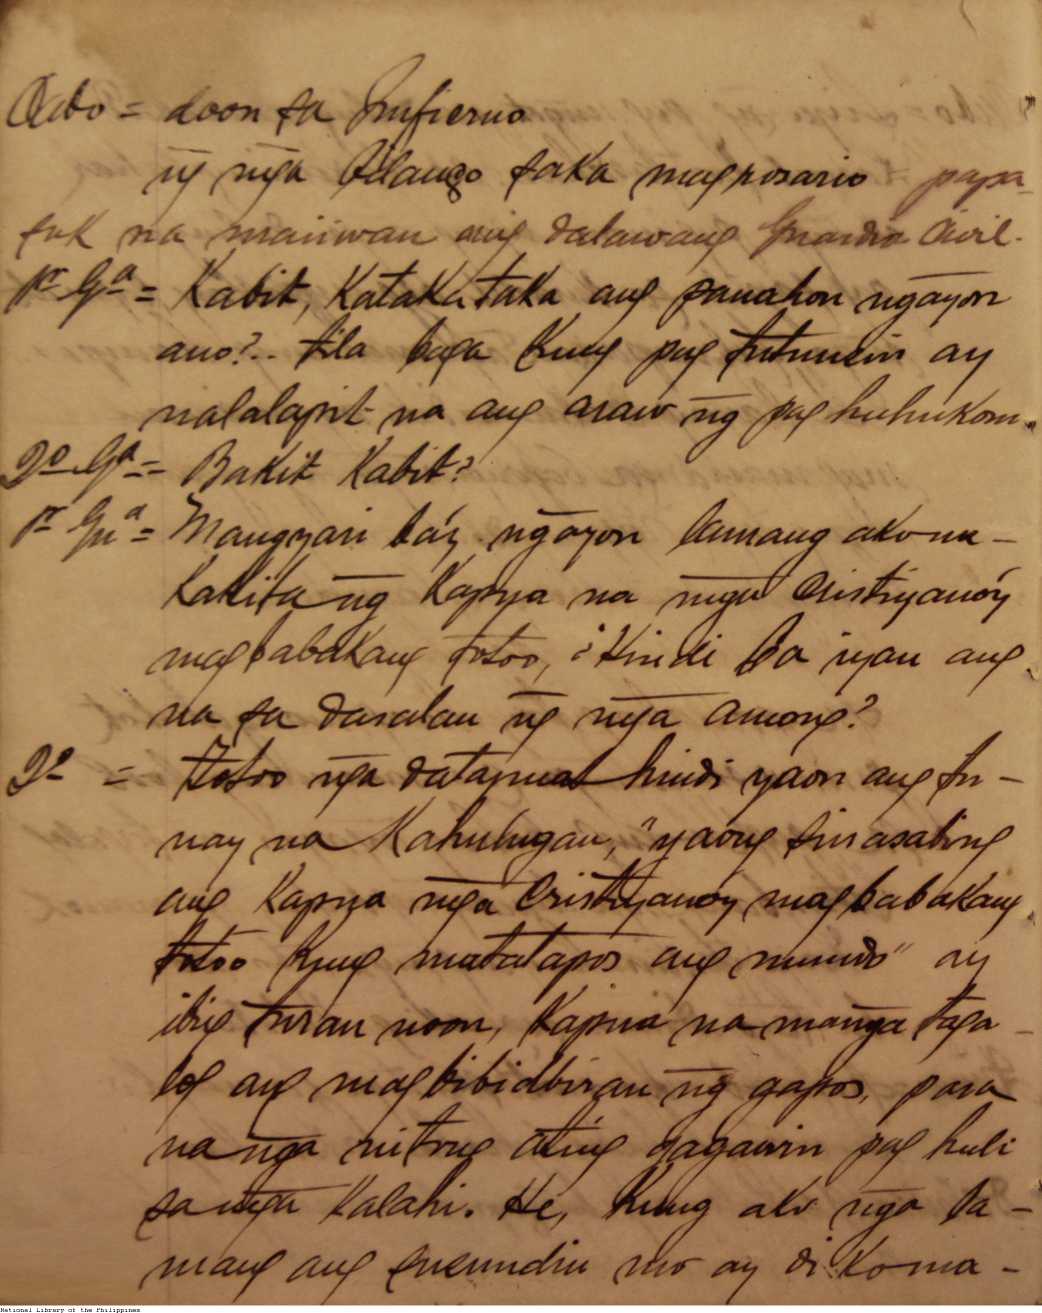 Cabo = doon sa Imfierno
ng m̃ga bilango saka magrosario papa-
suk na maiiwan ang dalawang Guardia Civil.
1r Ga = Kabit, Kataka taka ang panahon ñgayon
ano?.. tila baga kung pag tutuusin ay
nalalapit na ang araw ñg pag huhukom.
2o Ga = Bakit Kabit?
1r Gua = Mangyari ba'y ñgayon lamang ako na-
kakita ñg Kapua na m̃ga Cristiyano'y
magbabakang totoo, ¿Hindi ba iyan ang
na sa dasalan ñg m̃ga among?
2o = Totoo ñga datapuat hindi yaon ang tu-
nay na Kahulugan, "yaong sinasabing
ang Kapua m̃ga Cristiyanoy magbabakang
totoo kung matatapos ang mundo" ay
ibig turan noon, Kapua na mañga taga-
log ang magbibidbiran ñg gapos, para
na ñga nitong ating gagawin pag huli
sa m̃ga Kalahi. He, kung ako ñga la-
mang ang susundin mo ay di Ko ma-
National Library of the Philippines